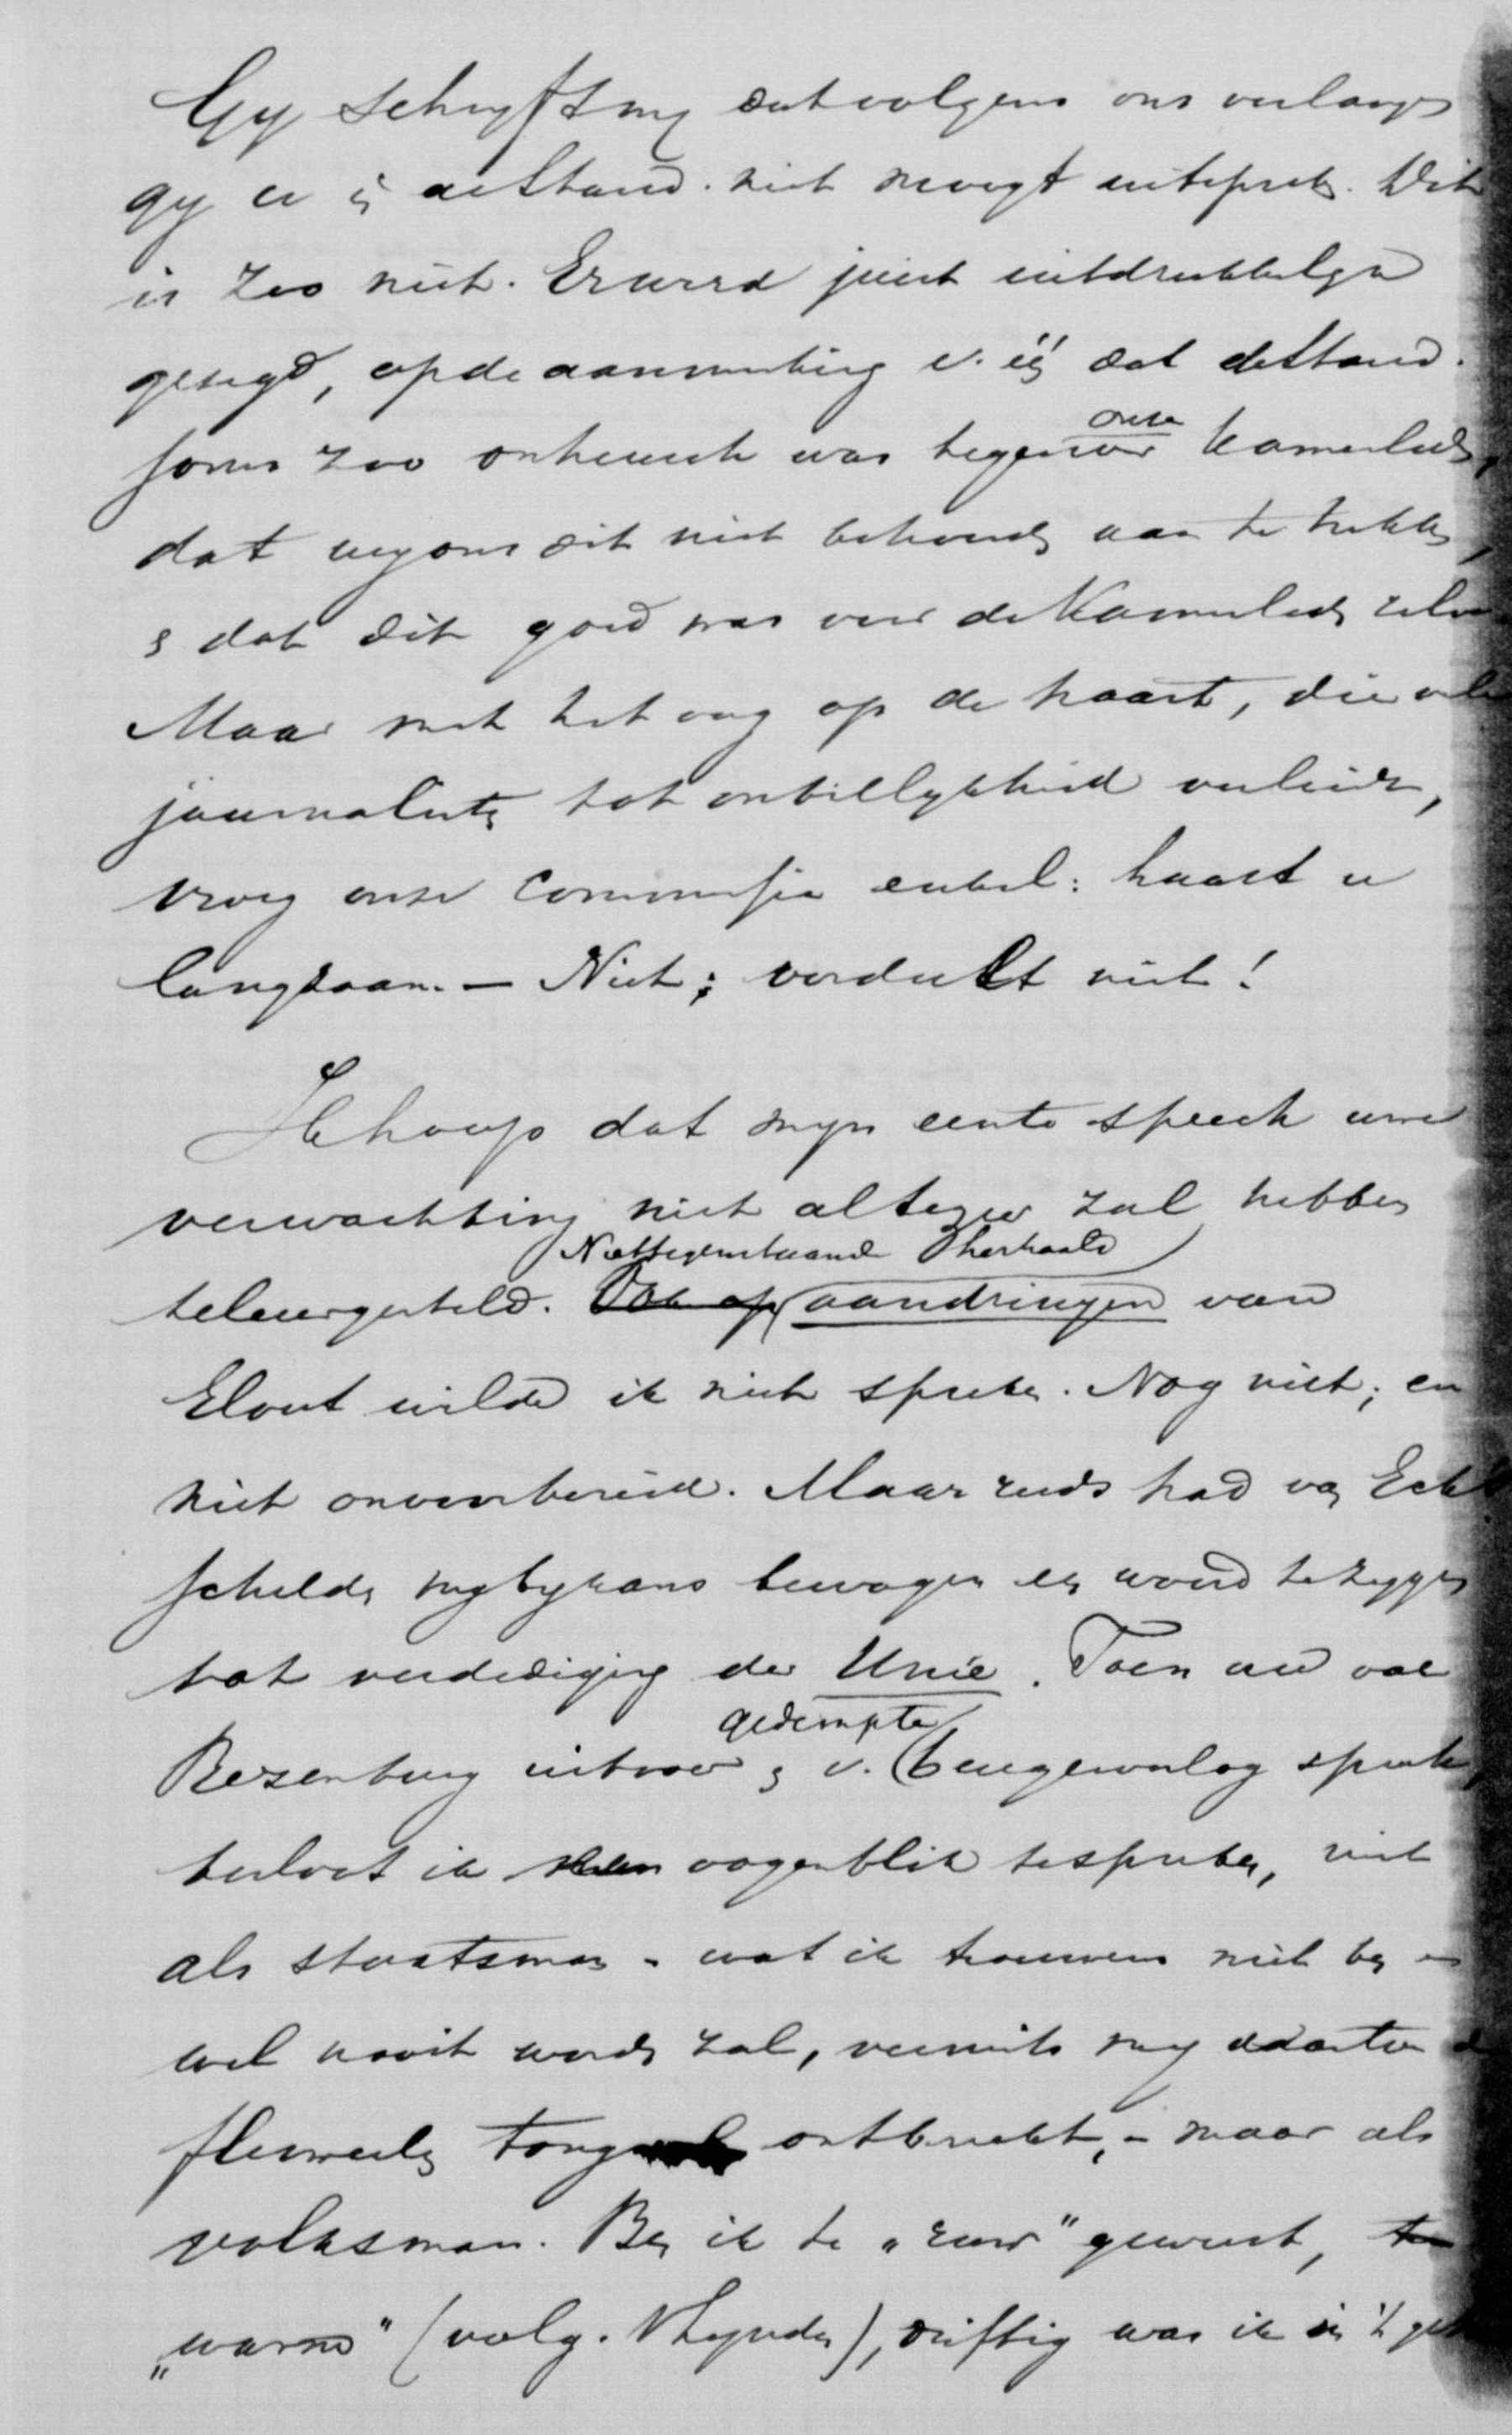 Gy schryft my dat volgens ons verlangen
gy er in de Stand. niet moogt uitspreken. Dit
is zoo niet. Er werd juist uitdrukkelyk
gezegd, op de aanmerking v. één dat de Stand.
soms zoo onheusch was tegenover onze Kamerleden,
dat wy ons dit niet behoorden aan te trekken,
en dat dit goed was voor de Kamerleden zelve.
Maar met het oog op de haast, die vele
journalisten tot onbillykheid verleidt,
vroeg onze Commissie enkel: haast u
langzaam. — Niet; verdenkt niet!
Ik hoop dat myn eerste speech uwe
verwachting niet al te zeer zal hebben
Niettegenstaande herhaald
teleurgesteld. Ook op aandringen van
Elout wilde ik niet spreken. Nog niet; en
niet onvoorbereid. Maar reeds had
my bykans bewogen een woord te zeggen
tot verdediging der Unie. Toen nu van
gedempte
uitvoer en v. sprak,
besloot ik een oogenblik te spreken, niet
als staatsman - wat ik trouwens niet ben en
wel nooit worden zal, vermits my daartoe de
fluweelen tong ontbreekt, - maar als
volksman. Ben ik te „ruw" geweest, te
„warm" (volg. ), driftig was ik in 't